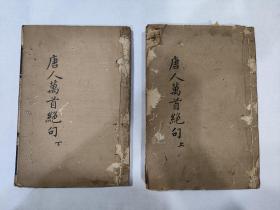 唐人萬首絕句上
唐人萬首絕句下